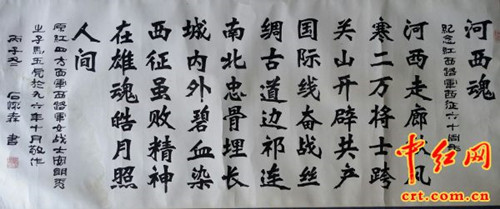 河西魂
纪念红西路军西征六十周年
河西走廊风
寒二万将士跨
关山开辟共产
国际线奋战丝
绸古道边祁连
南北忠骨埋长
城内外碧血染
西征虽败精神
在雄魂皓月照
人间
原红四方面军西路军女战士明秀
之子马玉於九六年十月敬作
丙子冬
书
中红网
crt.com.cn